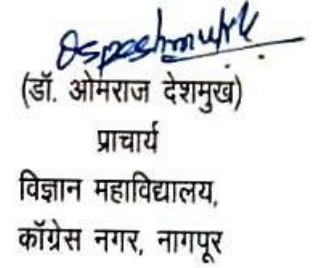 (डॉ. ओमराज देशमुख)
प्राचार्य
विज्ञान महाविद्यालय,
कॉंग्रेस नगर, नागपूर